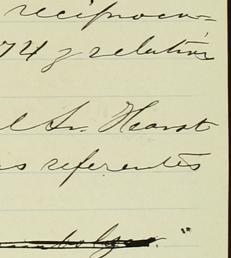 reciproca=
74 y relativa
el Sr. Hearst
as referentes